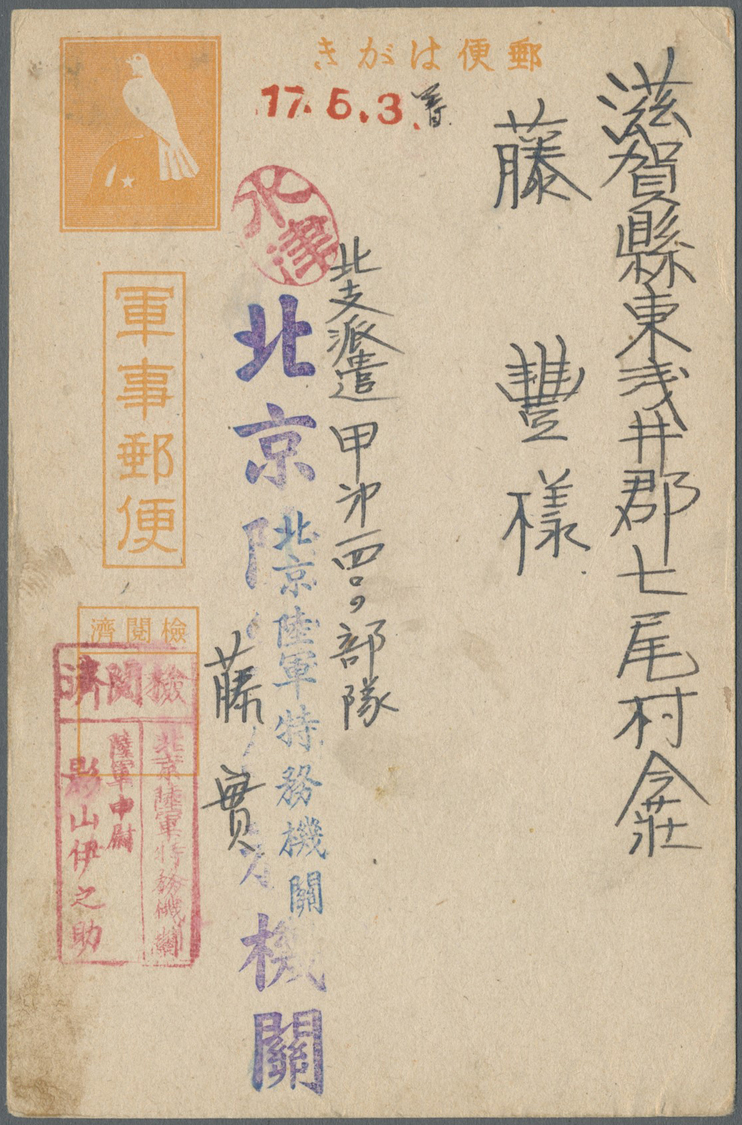 郵便はがき
17.5.3.着
滋賀縣東浅井郡七尾村今荘
藤豐様
北支派遣甲第一四〇〇部隊
藤實
木津
北京陸軍特務機關
北京陸軍特務機關
軍事郵便
檢閲濟
檢閲濟
北京陸軍特務機關
陸軍中尉
影山伊之助